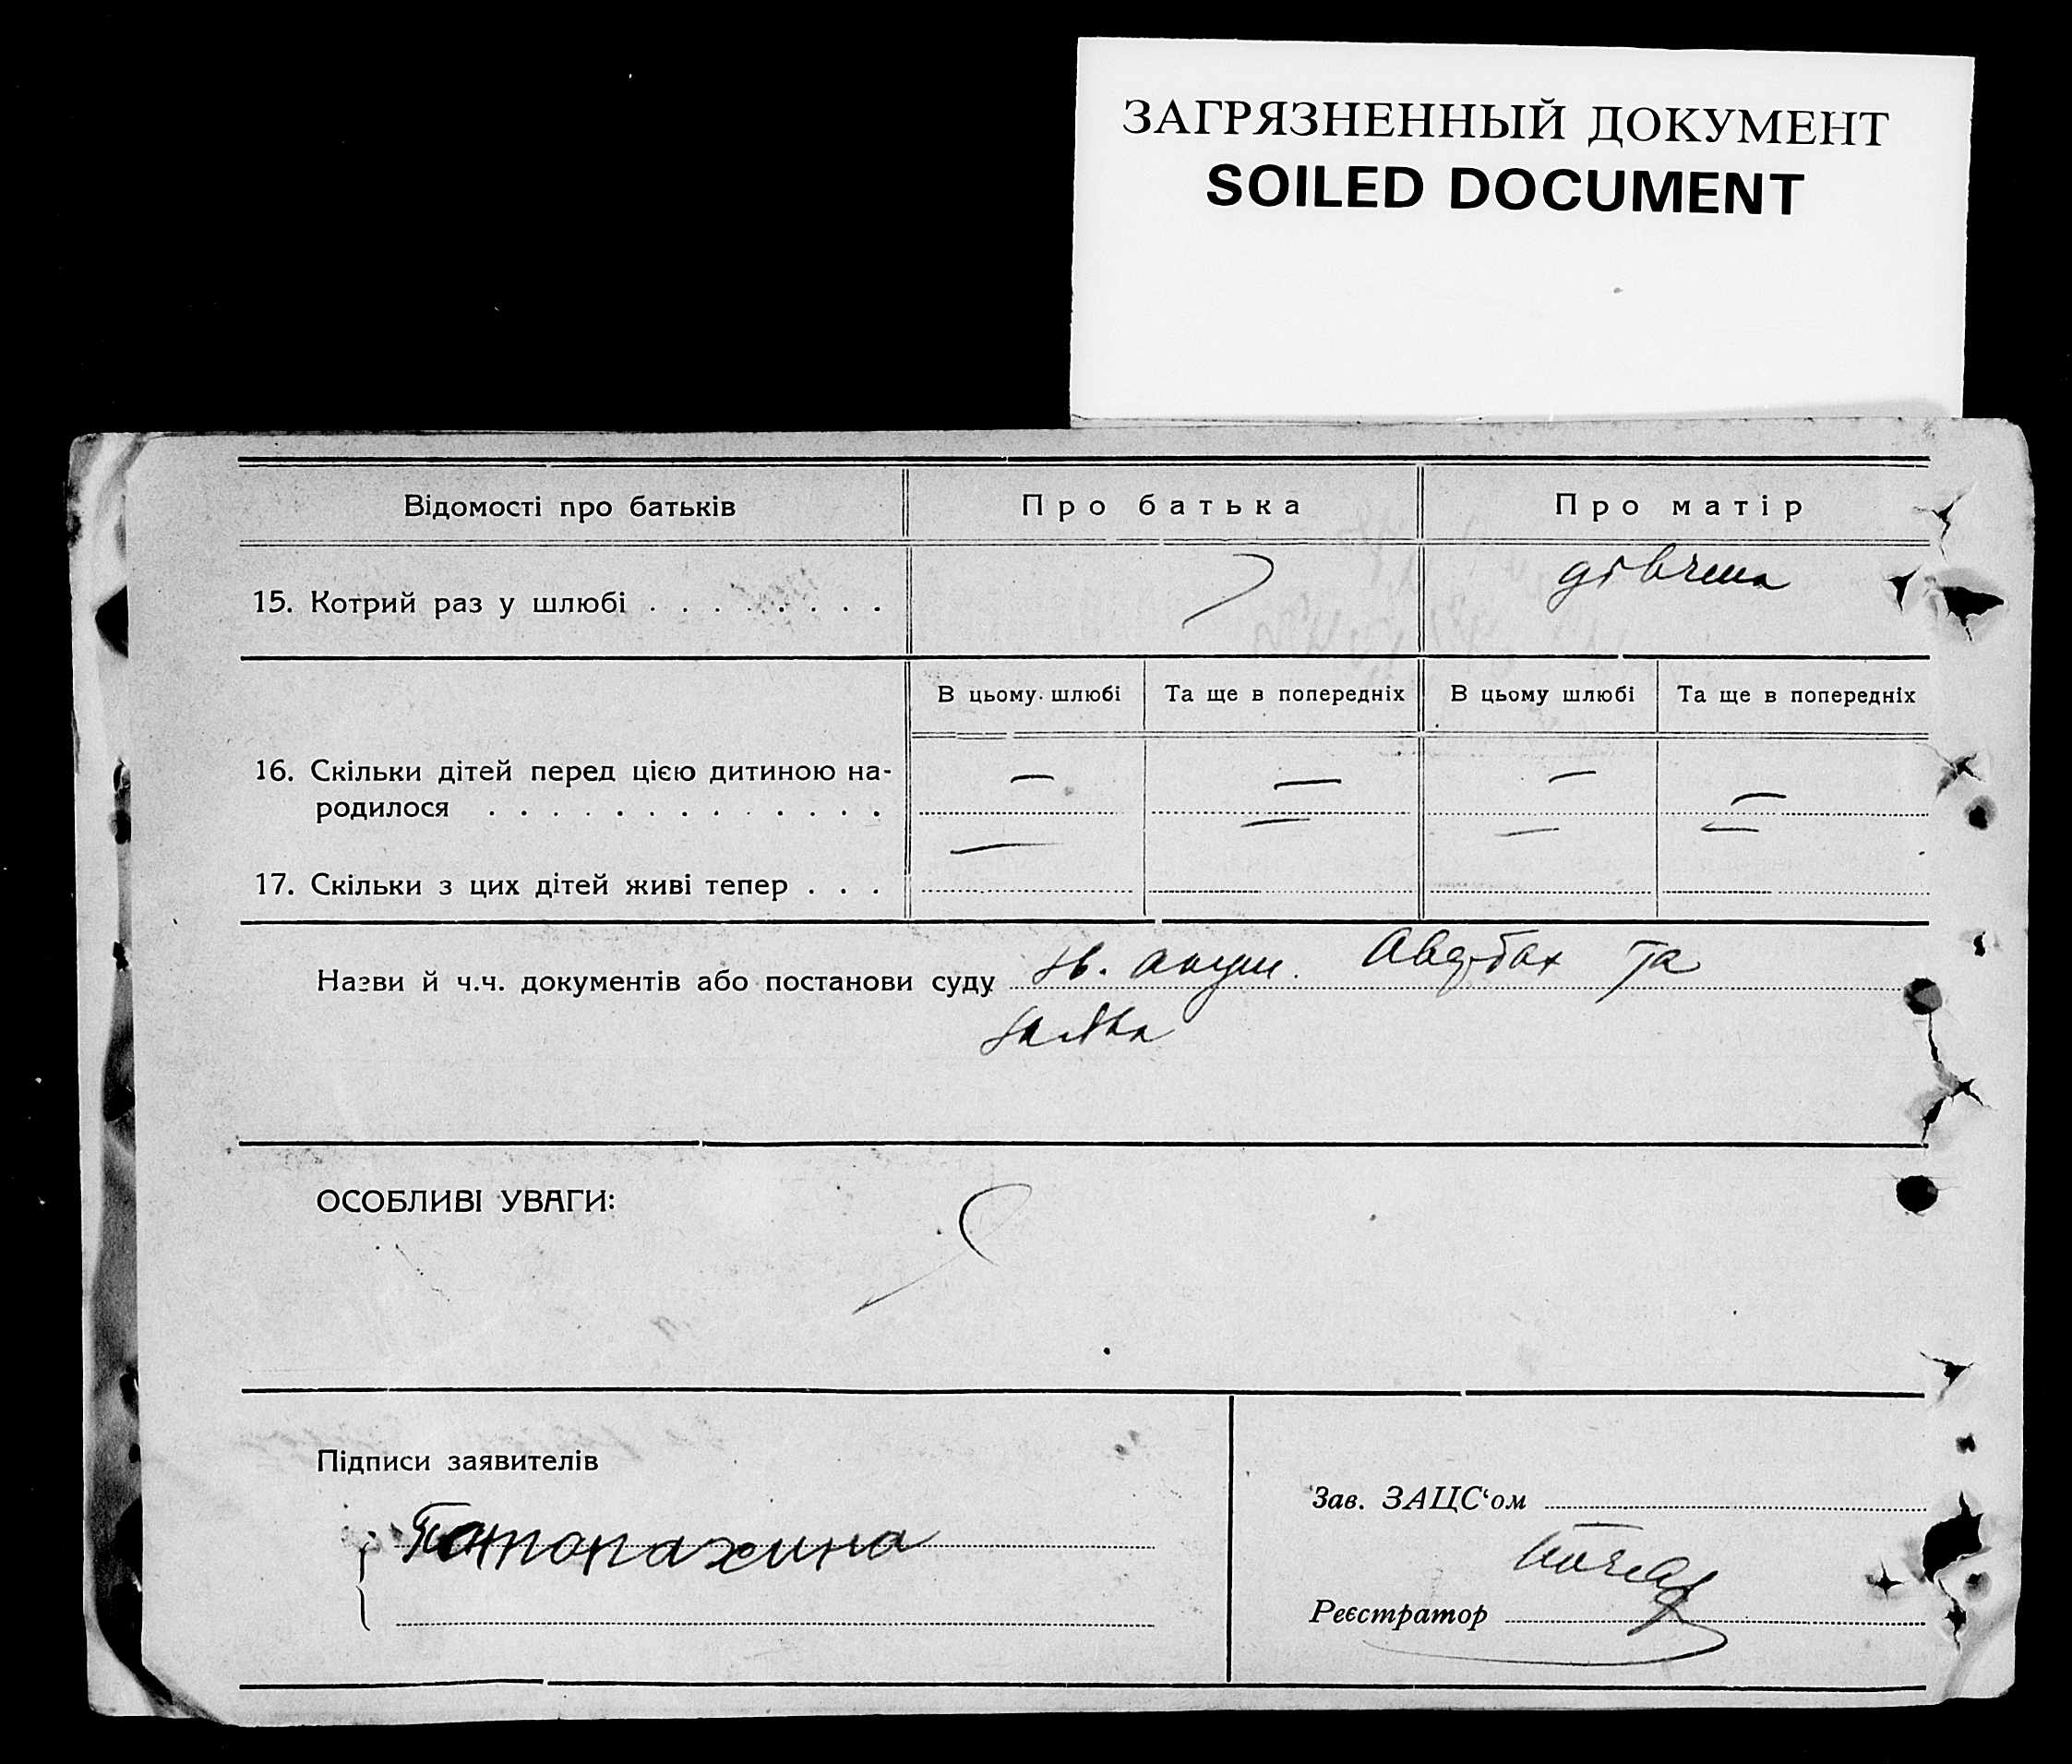 ЗАГРЯЗНЕННЫЙ ДОКУМЕНТ
SOILED DOCUMENT
Відомості про батьків
Про батька
Про матір
15. Котрий раз у шлюбі . . . . . . . .
дівчина
В цьому шлюбі
Та ще в попередніх
В цьому шлюбі
Та ще в попередніх
16. Скільки дітей перед цією дитиною на-
родилося . . . . . . . . . . . . .
— — — —
17. Скільки з цих дітей живі тепер . . .
— — — —
Назви й ч.ч. документів або постанови суду зв. акуш. та
заява
ОСОБЛИВІ УВАГИ:
Підписи заявителів
Зав. ЗАЦС‘ом
Реєстратор